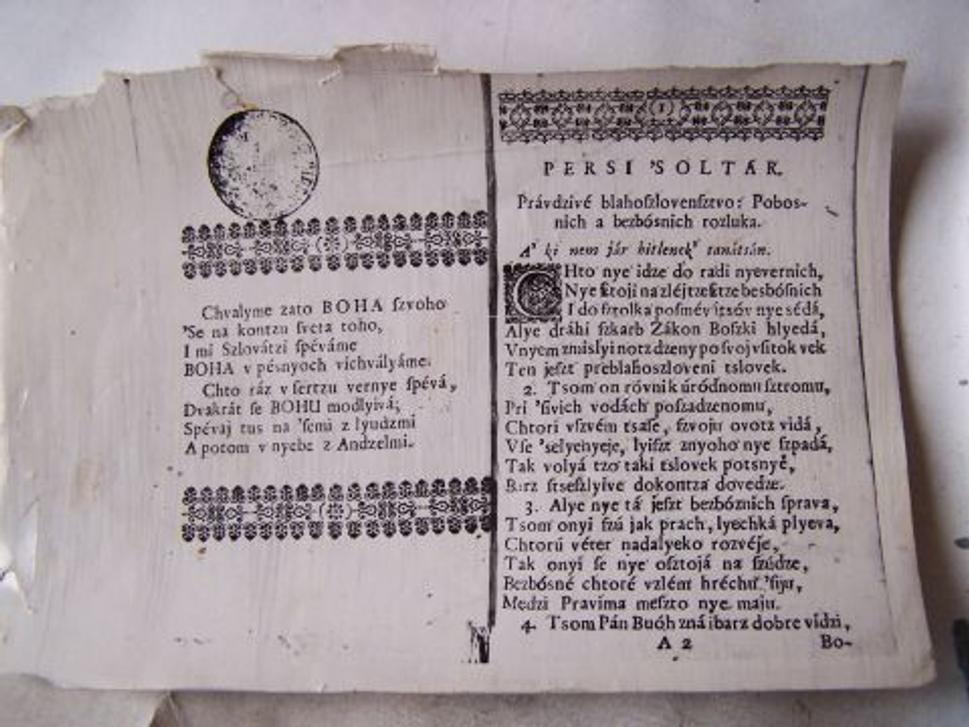 Chvalyme zato BOHA ſzvoho
'Se na kontzu ſveta toho,
I mi Szlovátzi ſpéváme
BOHA v péſnyoch vichvályáme.
Chto ráz v ſertzu vernye ſpévá,
Dvakrát ſe BOHU modlyivá;
Spévaj tus na 'ſemi z lyudzmi
A potom v nyebe z Andzelmi.
(1)
PERSI 'SOLTÁR.
Právdzivé blahoſzlovenſztvo: Pobos-
nich a bezbósnich rozluka.
A' ki nem jár hitlenek' tanátsán.
CHto nye idze do radi nyevernich,
Nye ſtoji na zléjtzeſtze besbóſnich
I do ſztolka poſmévitsóv nye sédá,
Alye dráhi ſzkarb Zákon Boſzki hlyedá,
Vnyem zmislyi notz dzeny po ſvoj vſitok vek
Ten jeſzt preblahoszloveni tslovek.
2. Tsom on róvni k úródnomu ſztromu,
Pri 'ſivich vodách poſzadzenomu,
Chtori vſzvém tsaſe, ſzvoju ovotz vidá,
Vſe 'selyenyeje, lyiſzt znyoho nye ſzpadá,
Tak volyá tzo taki tslovek potsnyé,
Barz ſtseſzlyive dokontza dovedze.
3. Alye nye tá jeſzt bezbóznich ſprava,
Tsom onyi ſzú jak prach, lyechká plyeva,
Chtorú véter nadalyeko rozvéje,
Tak onyi ſe nye oſztojá na ſzúdze,
Bezbósné chtoré vzlém hréchu 'ſiju,
Medzi Pravima meſzto nye maju.
4. Tsom Pán Buóh zná ibarz dobre vidzi,
A 2 Bo-